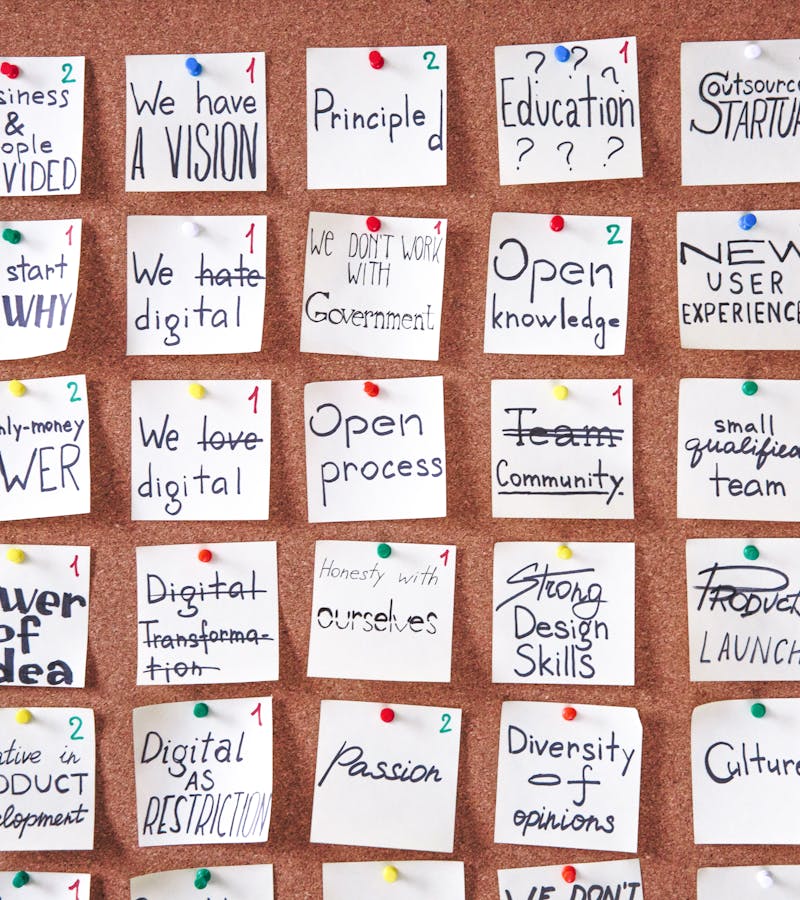 2
siness
&
ople
VIDED
1
We have
A VISION
2
Principled
? ? ? 1
Education
? ? ?
Outsource
STARTUP
1
start
WHY
We hate 1
digital
1
WE DON'T WORK
WITH
Government
2
Open
knowledge
NEW
USER
EXPERIENCE
2
nly-money
WER
1
We love
digital
Open
process
1
Team
Community.
small
qualified
team
1
wer
of
dea
Digital
Transforma-
tion
1
Honesty with
ourselves
Strong
Design
Skills
Product
LAUNCH
2
ative in
ODUCT
lopment
1
Digital
AS
RESTRICTION
2
Passion
Diversity
of
opinions
Culture
1
1
2
WE DON'T